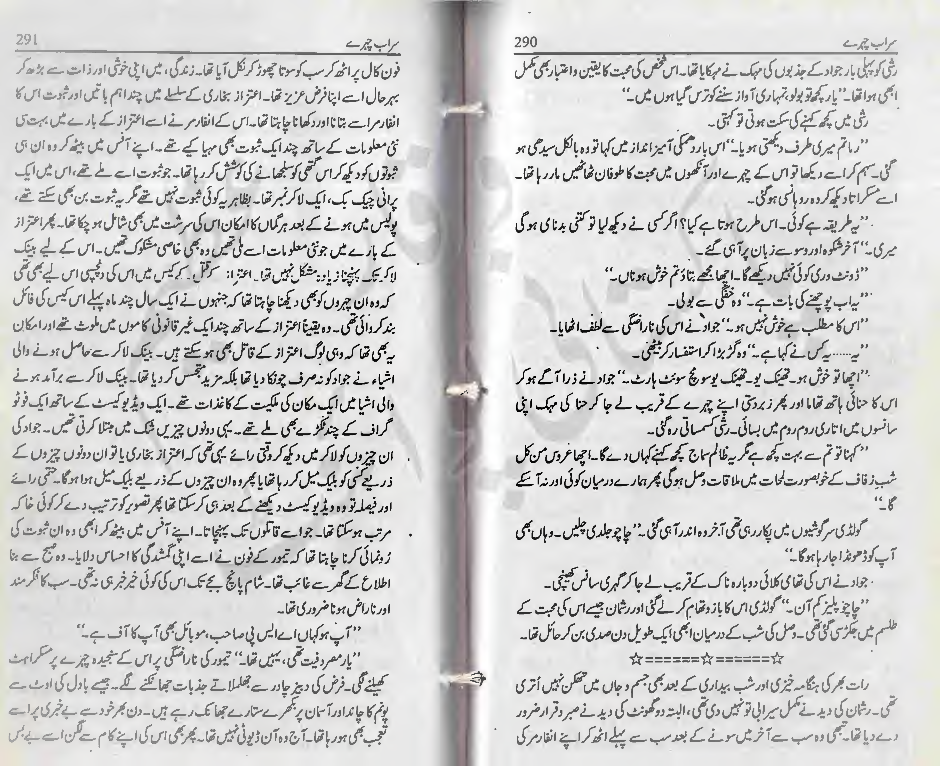 290 سراب چہرے
رشی کو پہلی بار جواد کے جذبوں کی مہک نے مہکایا تھا۔ اس شخص کی محبت کا یقین و اعتبار بھی مکمل
ابھی ہوا تھا۔ ”یار کچھ تو بولو تمہاری آواز سننے کو ترس گیا ہوں میں۔“
رشی میں کچھ کہنے کی سکت ہوتی تو کہتی۔
”رماتم میری طرف دیکھتی ہو یا۔“ اس بار دھمکی آمیز انداز میں کہا تو وہ بالکل سیدھی ہو
گئی۔ سہم کر اسے دیکھا تو اس کے چہرے اور آنکھوں میں محبت کا طوفان ٹھاٹھیں مار رہا تھا۔
اسے مسکراتا دیکھ کر وہ روہانسی ہو گئی۔
”یہ طریقہ ہے کوئی۔ اس طرح ہوتا ہے کیا؟ اگر کسی نے دیکھ لیا تو کتنی بدنامی ہو گی
میری۔“ آخر شکوہ اور وسوسے زبان پر آ ہی گئے۔
”ڈونٹ وری کوئی نہیں دیکھے گا۔ اچھا مجھے بتاؤ تم خوش ہو ناں۔“
”یہ اب پوچھنے کی بات ہے۔“ وہ خفگی سے بولی۔
”اس کا مطلب ہے خوش نہیں ہو۔“ جواد نے اس کی ناراضگی سے لطف اٹھایا۔
”یہ...... یہ کس نے کہا ہے۔“ وہ گڑبڑا کر استفسار کر بیٹھی۔
”اچھا تو خوش ہو۔ تھینک یو۔ تھینک یو سو مچ سوئٹ ہارٹ۔“ جواد نے ذرا آگے ہو کر
اس کا حنائی ہاتھ تھاما اور پھر زبردستی اپنے چہرے کے قریب لے جا کر حنا کی مہک اپنی
سانسوں میں اتاری روم روم میں بسائی۔ رشی کسمساتی رہ گئی۔
”کہنا تو تم سے بہت کچھ ہے مگر یہ ظالم سماج کچھ کہنے کہاں دے گا۔ اچھا عروس من کل
شب زفاف کے خوبصورت لمحات میں ملاقات وصل ہو گی پھر ہمارے درمیان کوئی اور نہ آ سکے
گا۔“
گولڈی سرگوشیوں میں پکار رہی تھی آخر وہ اندر آ ہی گئی۔ ”چاچو جلدی چلیں۔ وہاں بھی
آپ کو ڈھونڈا جا رہا ہو گا۔“
جواد نے اس کی تھامی کلائی دوبارہ ناک کے قریب لے جا کر گہری سانس کھینچی۔
”چاچو پلیز کم آن۔“ گولڈی اس کا بازو تھام کر لے گئی اور رشان جیسے اس کی محبت کے
طلسم میں جکڑی سی گئی تھی۔ وصل کی شب کے درمیان ابھی ایک طویل دن صدی بن کر حائل تھا۔
☆======☆======☆
رات بھر کی ہنگامہ خیزی اور شب بیداری کے بعد بھی جسم و جاں میں تھکن نہیں اتری
تھی۔ رشان کی دید نے مکمل سیرابی تو نہیں دی تھی، البتہ دو گھونٹ کی دید نے صبر و قرار ضرور
دے دیا تھا۔ تبھی وہ سب سے آخر میں سونے کے بعد سب سے پہلے اٹھ کر اپنے انفارمر کی
291 سراب چہرے
فون کال پر اٹھ کر سب کو سوتا چھوڑ کر نکل آیا تھا۔ زندگی، میں اپنی خوشی اور ذات سے بڑھ کر
بہر حال اسے اپنا فرض عزیز تھا۔ اعتزاز بخاری کے سلسلے میں چند اہم باتیں اور ثبوت اس کا
انفارمر اسے بتانا اور دکھانا چاہتا تھا۔ اس کے انفارمر نے اسے اعتزاز کے بارے میں بہت سی
نئی معلومات کے ساتھ چند ایک ثبوت بھی مہیا کیے تھے۔ اپنے آفس میں بیٹھ کر وہ ان ہی
ثبوتوں کو دیکھ کر اس گتھی کو سلجھانے کی کوشش کر رہا تھا۔ جو ثبوت اسے ملے تھے، اس میں ایک
پرانی چیک بک، ایک لاکر نمبر تھا۔ بظاہر یہ کوئی ثبوت نہیں تھے مگر یہ ثبوت بن بھی سکتے تھے،
پولیس میں ہونے کے بعد ہر گماں کا امکان اس کی سرشت میں بھی شامل ہو چکا تھا۔ پھر اعتزاز
کے بارے میں جو نئی معلومات اسے ملی تھیں وہ بھی خاصی مشکوک تھیں۔ اس کے لیے بینک
لاکر تک پہنچنا زیادہ مشکل نہیں تھا۔ اعتزاز کے قتل کے کیس میں اس کی دلچسپی اس لیے بھی تھی
کہ وہ ان چہروں کو بھی دیکھنا چاہتا تھا کہ جنہوں نے ایک سال چند ماہ پہلے اس کیس کی فائل
بند کروائی تھی۔ وہ یقیناً اعتزاز کے ساتھ چند ایک غیر قانونی کاموں میں ملوث تھے اور امکان
یہ بھی تھا کہ وہی لوگ اعتزاز کے قاتل بھی ہو سکتے ہیں۔ بینک لاکر سے حاصل ہونے والی
اشیاء نے جواد کو نہ صرف چونکا دیا تھا بلکہ مزید متجسس کر دیا تھا۔ بینک لاکر سے برآمد ہونے
والی اشیا میں ایک مکان کی ملکیت کے کاغذات تھے۔ ایک ویڈیو کیسٹ کے ساتھ ایک فوٹو
گراف کے چند ٹکڑے بھی ملے تھے۔ یہی دونوں چیزیں شک میں مبتلا کرتی تھیں۔ جواد کی
ان چیزوں کو لاکر میں دیکھ کر وقتی رائے یہی تھی کہ اعتزاز بخاری یا تو ان دونوں چیزوں کے
ذریعے کسی کو بلیک میل کر رہا تھا یا پھر وہ ان چیزوں کے ذریعے بلیک میل ہوا ہو گا۔ حتمی رائے
اور فیصلہ تو وہ ویڈیو کیسٹ دیکھنے کے بعد ہی کر سکتا تھا پھر تصویر کو ترتیب دے کر کوئی خاکہ
مرتب ہو سکتا تھا۔ جو اسے قاتلوں تک پہنچاتا۔ اپنے آفس میں بیٹھ کر ابھی وہ ان ثبوت کی
رونمائی کرنا چاہتا تھا کہ تیمور کے فون نے اسے اپنی گمشدگی کا احساس دلایا۔ وہ صبح سے بنا
اطلاع کے گھر سے غائب تھا۔ شام پانچ بجے تک اس کی کوئی خیر خبر ہی نہ تھی۔ سب کا فکر مند
اور ناراض ہونا ضروری تھا۔
”آپ ہو کہاں اے ایس پی صاحب، موبائل بھی آپ کا آف ہے۔“
”یار مصروفیت تھی، یہیں تھا۔“ تیمور کی ناراضگی پر اس کے سنجیدہ چہرے پر مسکراہٹ
کھیلنے لگی۔ فرض کی دبیز چادر سے جھلملاتے جذبات جھانکنے لگے۔ جیسے بادل کی اوٹ سے
پونم کا چاند اور آسمان پر بکھرے ستارے جھانک رہے ہیں۔ دن بھر خود سے بے خبری پر اسے
تعجب بھی ہو رہا تھا۔ آج وہ آن ڈیوٹی نہیں تھا۔ پھر بھی اس کی اپنے کام سے لگن اسے بے بس